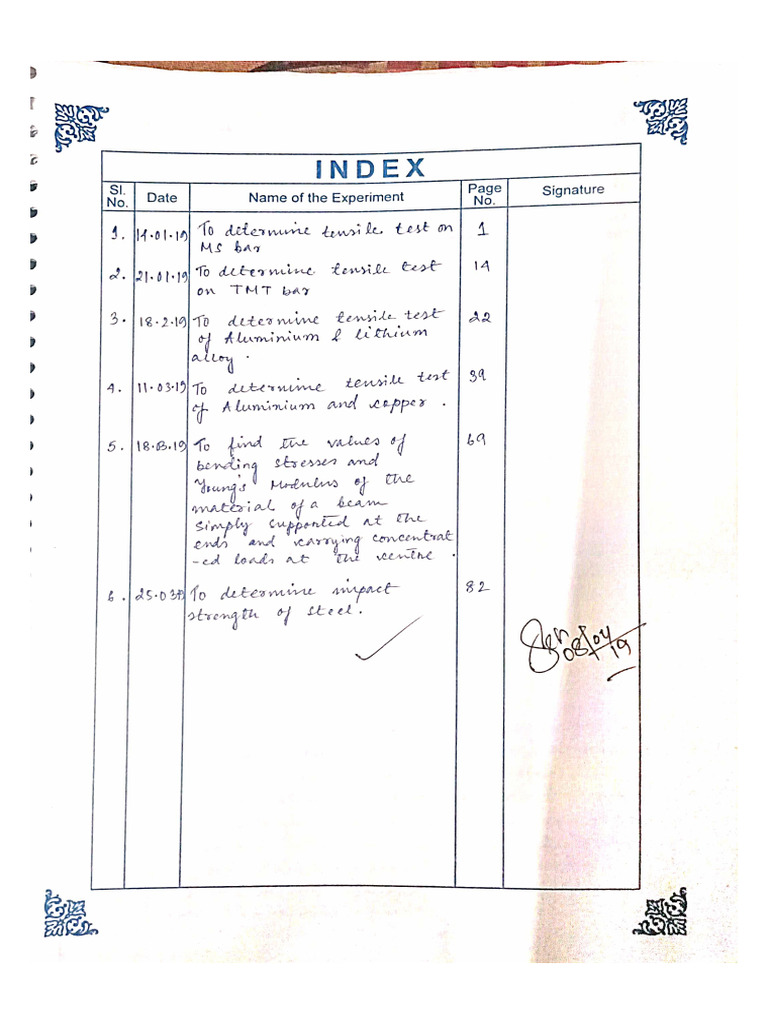 INDEX
Sl. No. Date Name of the Experiment Page No. Signature
1. 14.01.19 To determine tensile test on 1
MS bar
2. 21.01.19 To determine tensile test 14
on TMT bar
3. 18.2.19 To determine tensile test 22
of Aluminium & lithium
alloy.
4. 11.03.19 To determine tensile test 39
of Aluminium and copper.
5. 18.03.19 To find the values of 69
bending stresses and
Young's Modulus of the
material of a beam
simply supported at the
ends and carrying concentrat
-ed loads at the centre.
6. 25.03.19 To determine impact 82
strength of steel.
08/04/19